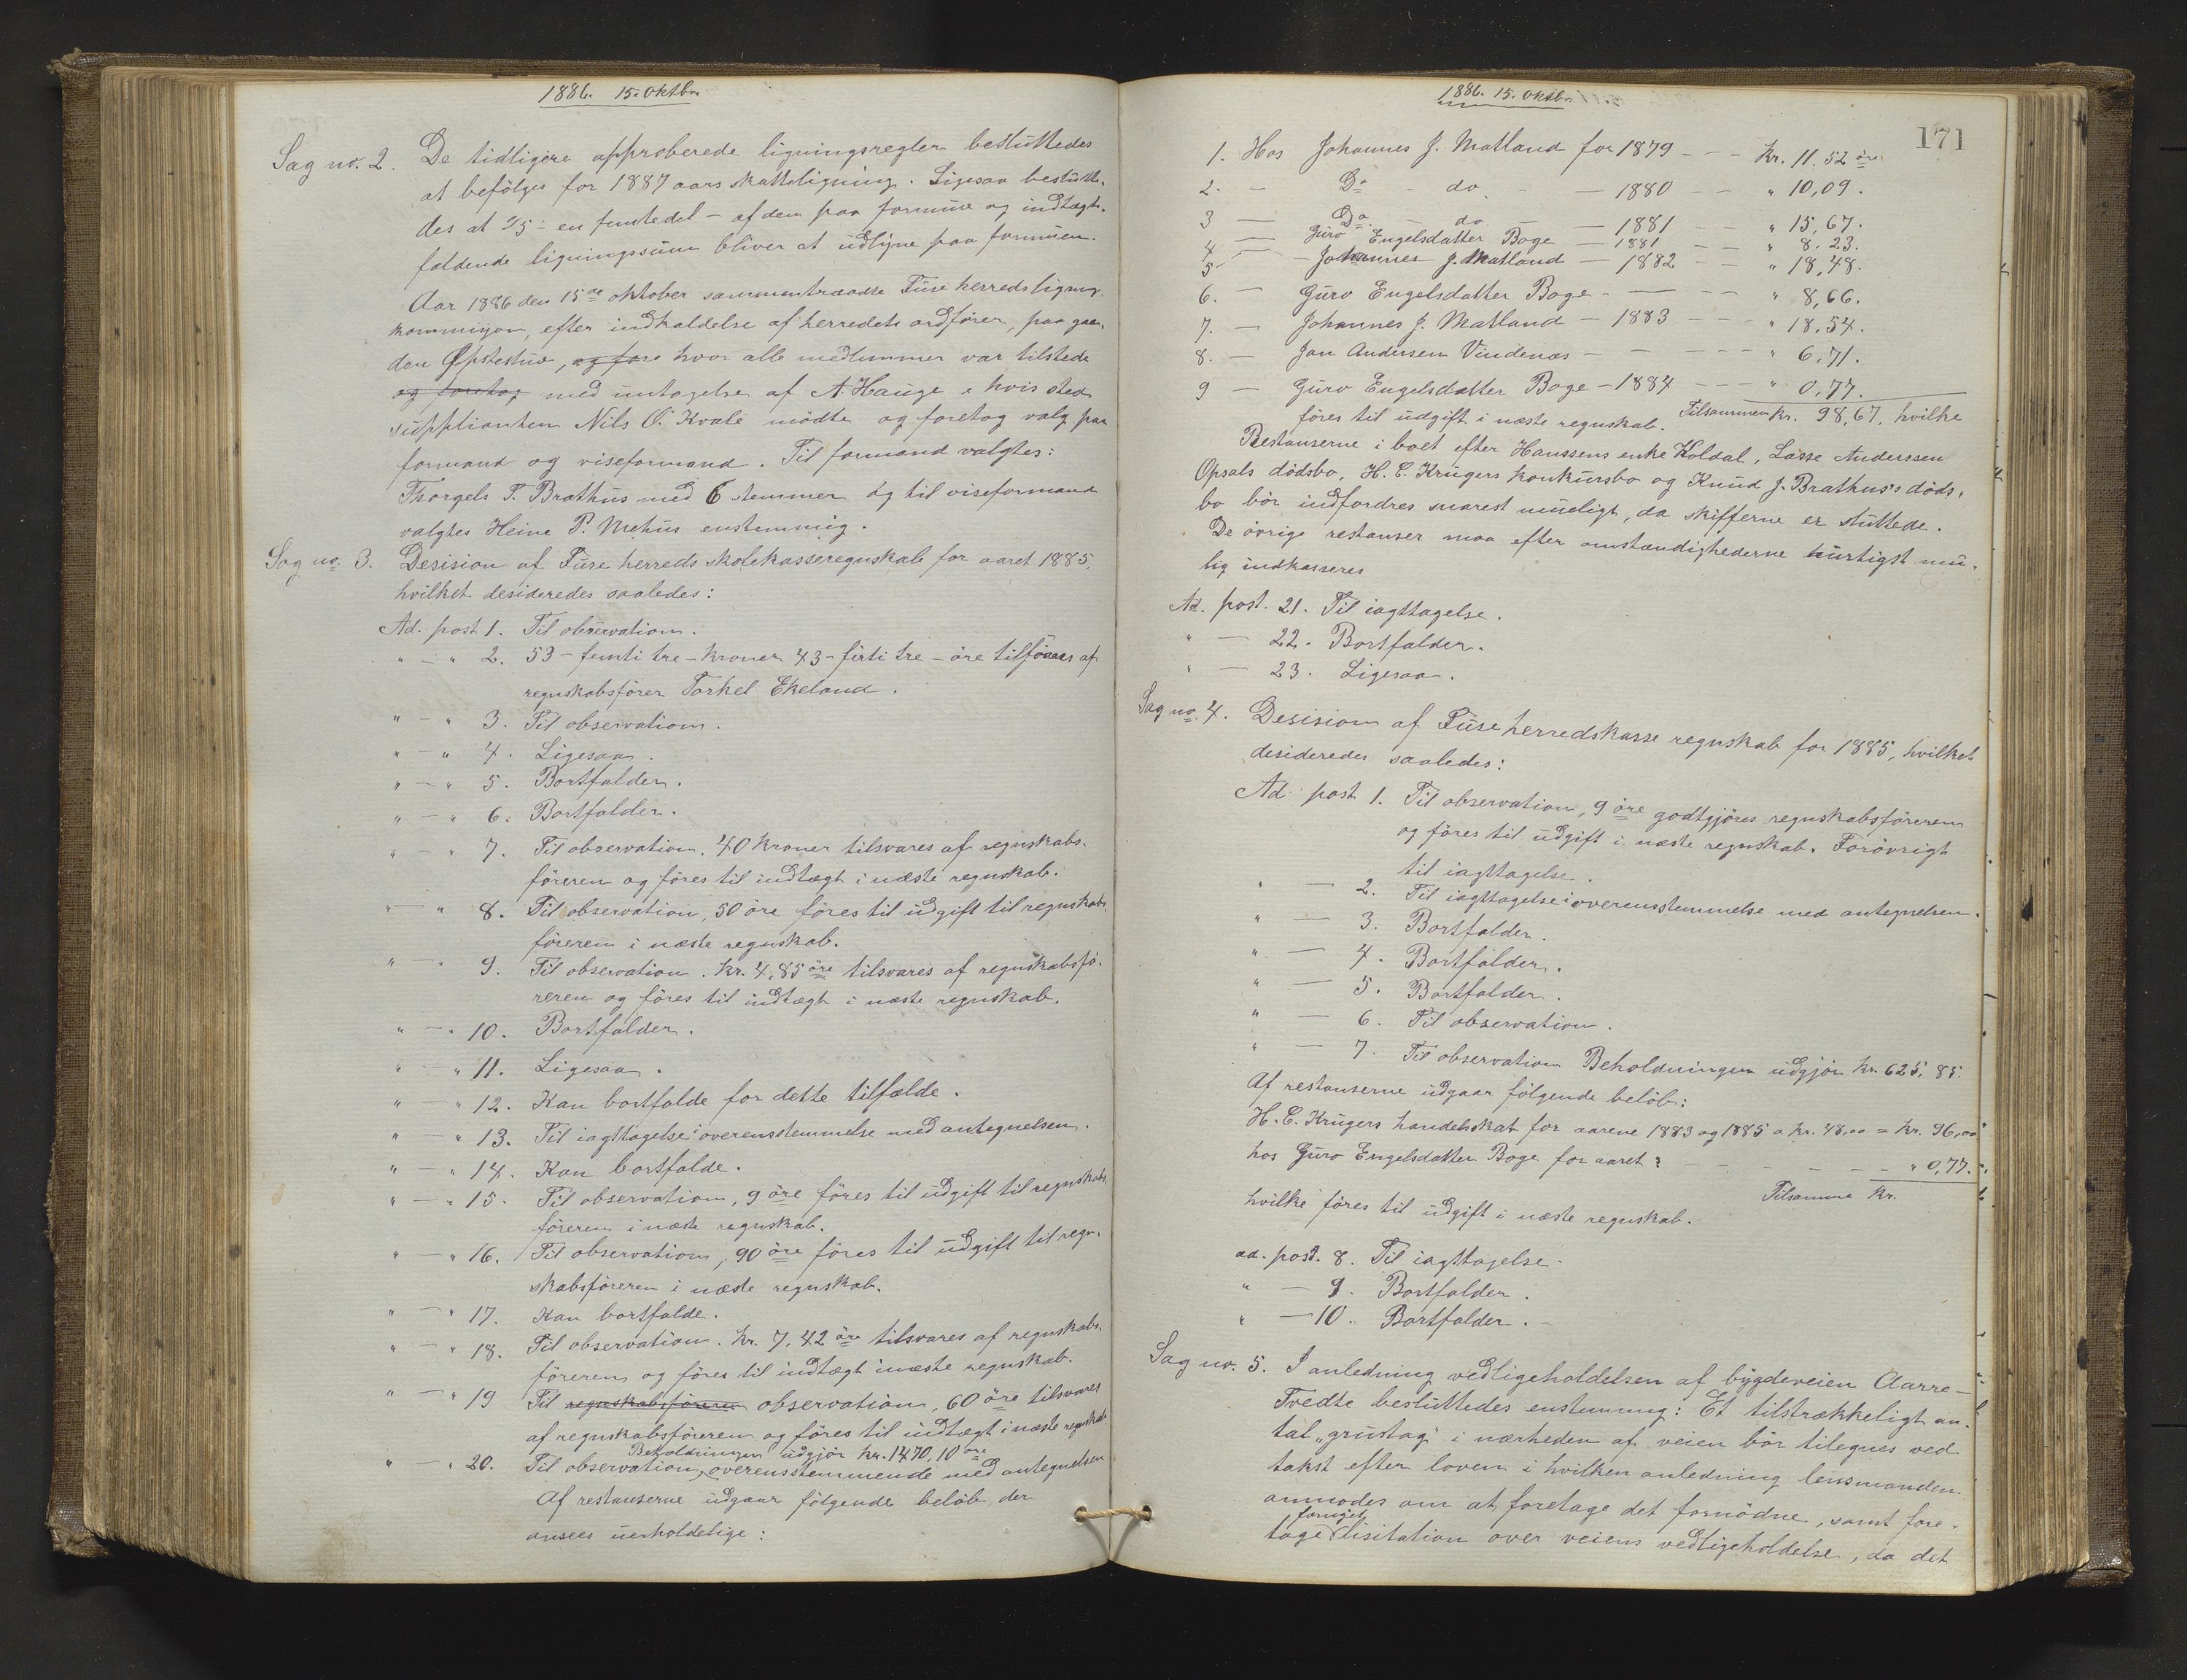 1886. 15. Oktbr.
Sag no. 2. De tidligere approberede ligningsregler besluttedes
at befölges for 1887 aars skatteligning. Ligesaa beslutte-
des at 1/5 - en femtedel - af den paa formue og indtægt
faldende ligningssum bliver at udligne paa formuen.
Aar 1886 den 15de oktober sammentraadte Fuse herreds ligning-
kommisjon, efter indkaldelse af herredets ordförer, paa gaar-
den Öpstestuw, og fore hvor alle medlemmer var tilstede
og foretog med untagelse af A. Hauge i hvis sted
supplianten Nils O. Kvale mödte og foretog valg paa
formand og viseformand. Til formand valgtes:
Thorgels T. Brathus med 6 stemmer og til viseformand
valgtes Heine P. Mehus enstemmig.
Sag no. 3. Desision af Fuse herreds skolekasseregnskab for aaret 1885,
hvilket desideredes saaledes:
Ad. post 1. Til observation.
" - " 2. 53 - femti tre - kroner 43 - firti tre - öre tilföres af
regnskabsförer Torkel Ekeland.
" - " 3. Til observation.
" - " 4. Ligesaa.
" - " 5. Bortfalder.
" - " 6. Bortfalder.
" - " 7. Til observation. 40 kroner tilsvares af regnskabs-
föreren og föres til indtægt i næste regnskab.
" - " 8. Til observation, 50 öre föres til udgift til regnskabs-
föreren i næste regnskab.
" - " 9. Til observation. Kr. 4,85 öre tilsvares af regnskabsfö-
reren og föres til indtægt i næste regnskab.
" - " 10. Bortfalder.
" - " 11. Ligesaa.
" - " 12. Kan bortfalde for dette tilfælde.
" - " 13. Til iagttagelse i overensstemmelse med antegnelsen.
" - " 14. Kan bortfalde.
" - " 15. Til observation, 9 öre föres til udgift til regnskabs
föreren i næste regnskab.
" - " 16. Til observation, 90 öre föres til udgift til regn-
skabsföreren i næste regnskab.
" - " 17. Kan bortfalde.
" - " 18. Til observation. Kr. 7,42 öre tilsvares af regnskabs-
föreren og föres til indtægt i næste regnskab.
" - " 19 Til regnskabsföreren observation, 60 öre tilsvares
af regnskabsföreren og föres til indtægt i næste regnskab
Beholdningen udgjör Kr. 1470,10 öre
" - " 20. Til observation, overensstemmende med antegnelsen
Af restanserne udgaar fölgende belöb, der
ansees uerholdelige:
1886. 15. Oktbr.
171
1. Hos Johannes J. Matland for 1879 - - Kr. 11,52 öre
2. - Do - do - - 1880 - - " 10,09.
3 - Do do - 1881 - - " 15,67.
4 - Guro Engelsdatter Boge - 1881 - - " 8,23.
5 - Johannes J. Matland - 1882 - - " 18,48.
6. - Guro Engelsdatter Boge - - - - " 8,66.
7. - Johannes J. Matland - 1883 - - " 18,54.
8. - Jan Andersen Vindenes - - - - " 6,71.
9 - Guro Engelsdatter Boge - 1884 - - - " 0,77.
föres til udgift i næste regnskab. Tilsammen Kr. 98,67, hvilke
Restanserne i boet efter Hanssens enke Koldal, Lasse Anderssen
Opsals dödsbo, H. C. Krügers konkursbo og Knud J. Brathus's döds-
bo bör indfordres snarest mueligt, da skifterne er sluttede.
De övrige restanser maa efter omstændighederne hurtigst mu-
lig indkasseres
Ad. post. 21. Til iagttagelse.
" - 22. Bortfalder.
" - 23. Ligesaa.
Sag no. 4. Desision af Fuse herredskasse regnskab for 1885, hvilket
desideredes saaledes:
Ad post 1. Til observation, 9 öre godtgjöres regnskabsföreren
og föres til udgift i næste regnskab. Forövrigt
til iagttagelse.
" - 2. Til iagttagelse i overensstemmelse med antegnelsen.
" - 3. Bortfalder.
" - 4. Bortfalder.
" - 5. Bortfalder.
" - 6. Til observation.
" - 7. Til observation Beholdningen udgjör Kr. 625,85.
Af restanserne udgaar fölgende belöb:
H. C. Krügers handelsskat for aarene 1883 og 1885 a Kr. 48,00 = Kr. 96,00
hos Guro Engelsdatter Boge for aaret? - - - - - " 0,77.
Tilsamme Kr.
hvilke föres til udgift i næste regnskab.
ad. post. 8. Til iagttagelse.
" - 9. Bortfalder.
" - 10. Bortfalder.
Sag no. 5. I anledning vedligeholdelsen af bygdeveien Aarre-
Tvedte besluttedes enstemmig: Et tilstrækkeligt an-
tal "grustag" i nærheden af veien bör tilegnes ved
takst efter loven i hvilken anledning lensmanden
anmodes om at foretage det fornödne, samt fore-
fornyet
tage lisitation over veiens vedligeholdelse, da det